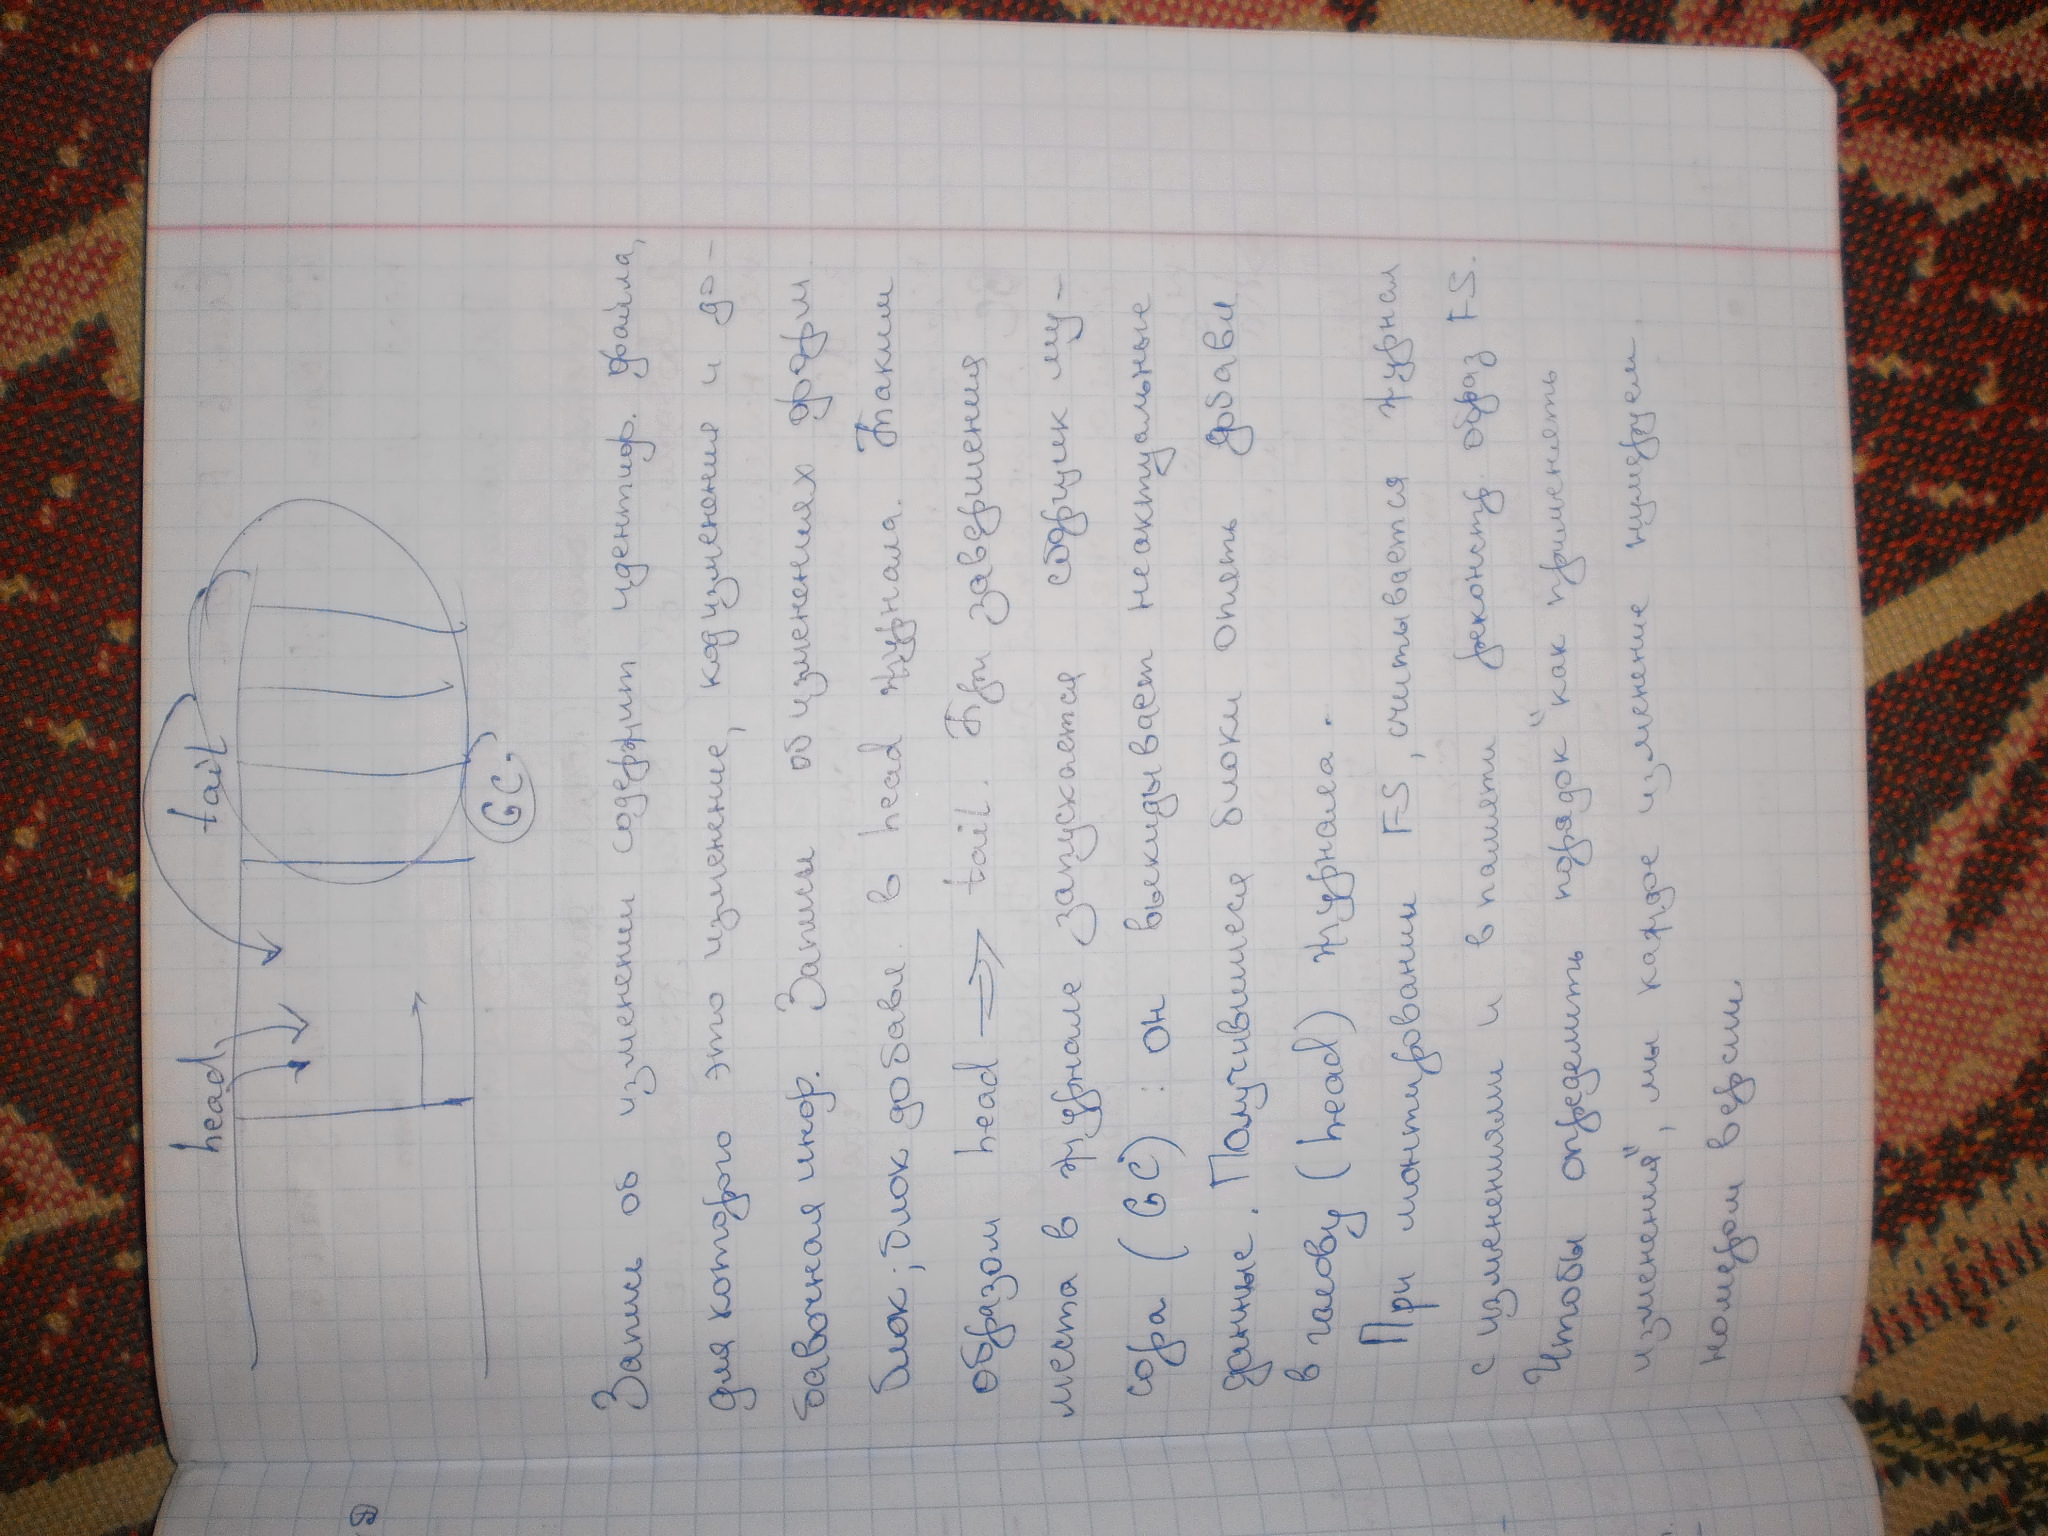 head tail
GC
Запись об изменении содержит идентиф. файла,
для которого это изменение, код изменения и до-
бавочная инфор. Записи об изменениях форм
блок; блок добавл. в head журнала. Таким
образом head ⟹ tail. При завершения
места в журнале запускается сборщик му-
сора (GC) : он выкидывает неактуальные
данные. Получившиеся блоки опять добавл
в голову (head) журнала.
При монтировании FS, считывается журнал
с изменениями и в памяти реконстр. образ FS.
Чтобы определить порядок "как применять
изменения", мы каждое изменение нумеруем
номером версии.